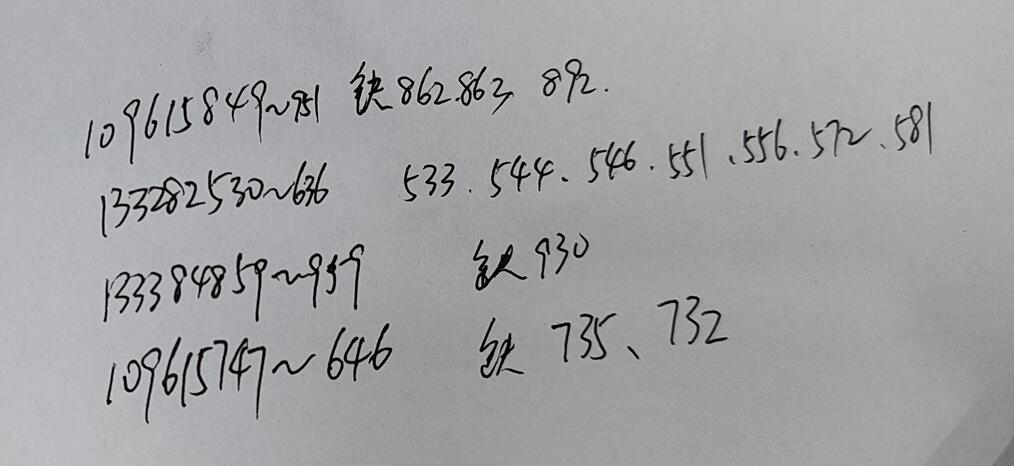 109615849~951 缺862.863, 892.
133282530~636 533.544.546.551.556.572.581
133384859~959 缺930
109615747~646 缺 735、732